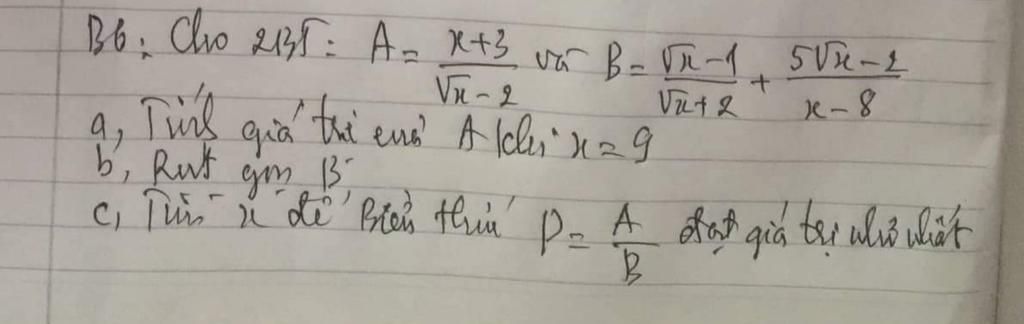 B6: Cho 2BT: A = \frac{x+3}{\sqrt{x}-2} và B = \frac{\sqrt{x}-1}{\sqrt{x}+2} + \frac{5\sqrt{x}-2}{x-8}
a, Tính giá trị của A khi x = 9
b, Rút gọn B
c, Tìm x để Biểu thức P = \frac{A}{B} đạt giá trị nhỏ nhất